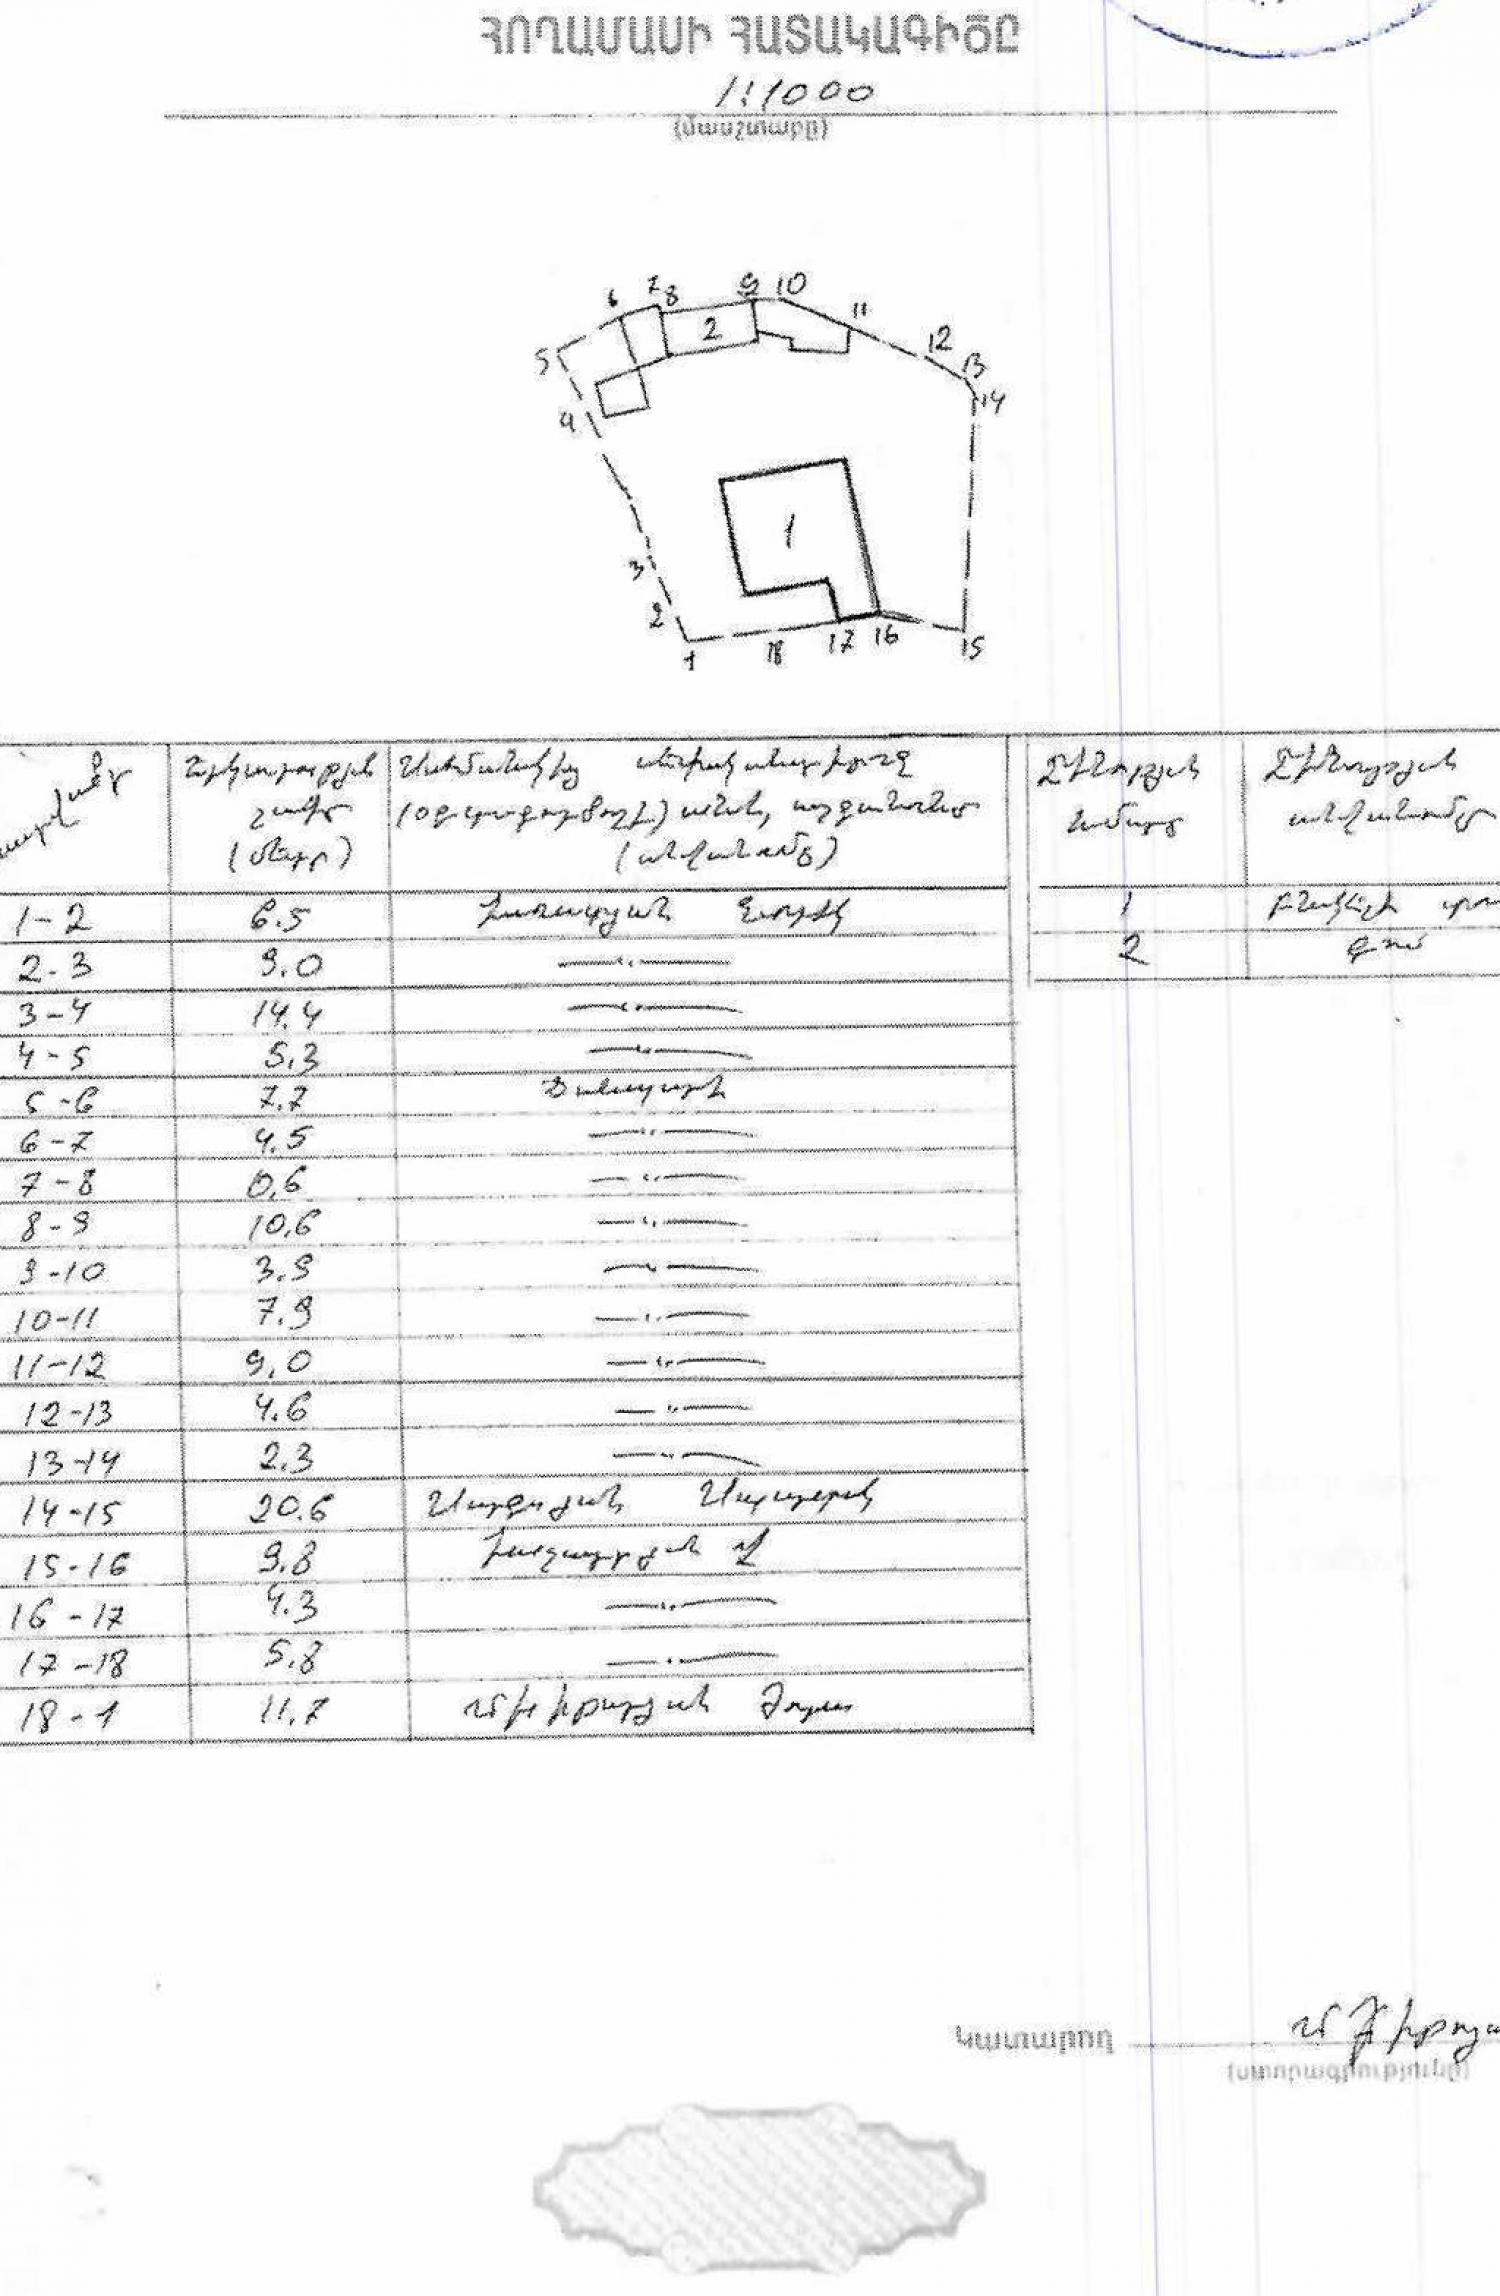 ՀՈՂԱՄԱՍԻ ՀԱՏԱԿԱԳԻԾԸ
1:1000
(մասշտաբը)
7 8 9 10
6 11
2
5 12
13
14
4
1
3
2
1 18 17 16 15
երկարության Սահմանակից սեփականատիրոջ Շինության Շինության
չափը (օգտագործողի) անուն, ազգանունը համարը անվանումը
(մետր) (անվանումը)
1-2 6.5 1 բնակելի
2-3 9.0 —〃— 2 գոմ
3-4 14.4 —〃—
4-5 5.3 —〃—
5-6 7.7 Ճանապարհ
6-7 4.5 —〃—
7-8 0,6 —〃—
8-9 10,6 —〃—
9-10 3.9 —〃—
10-11 7.9 —〃—
11-12 9,0 —〃—
12-13 4.6 —〃—
13-14 2.3 —〃—
14-15 20.6 Սարգսյան
15-16 9.8 Խաչատրյան
16-17 4.3 —〃—
17-18 5.8 —〃—
18-1 11.7 Մխիթարյան
Կատարող
(ստորագրությունը)